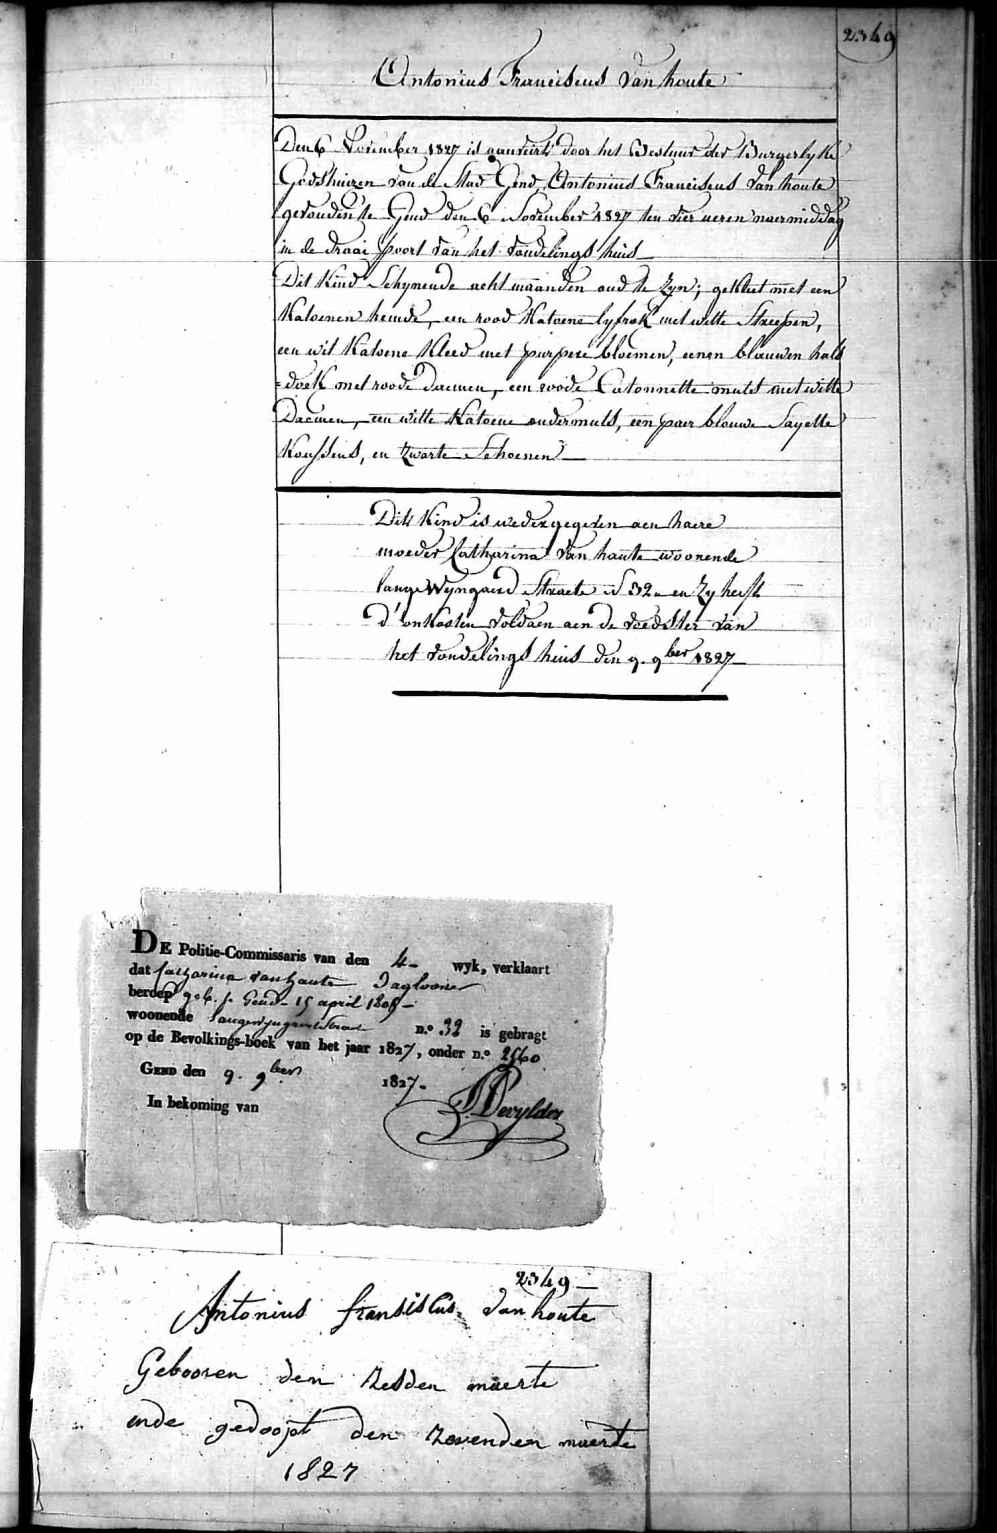 2349
Antonius Franciscus Van houte
Den 6 November 1827 is aanveirt door het Bestuur der Burgerlyke
Godshuizen van de Stad Gend, Antonius Franciscus Van houte
gevonden te Gend den 6 November 1827 ten vier ueren naermiddag
in de draai poort van het vondelings huis
Dit Kind Schynende acht maanden oud te zyn; gekleet met een
Katoenen hemde, een rood Katoene lyfrok met witte Streepen,
een wit Katoene Kleed met purpere bloemen, eenen blauwen hals
=doek met roode Daemen, een roode Catonnette muts met witte
Daemen, een witte Katoene ondermuts, een paer blouwe Sayette
Koussens, en zwarte Schoenen
Dit Kind is wedergegeven aen haere
moeder Catharina Van haute woonende
lange Wyngaerd Straete N 32 en Zy heeft
d'onkosten voldaen aen de voedster van
het vondelings huis den 9. 9ber 1827
DE Politie-Commissaris van den 4 wyk, verklaart
dat Catharina van haute Daglooner
beroep geb. te Gend 15 april 1808
woonende Langewyngaerdstraet n.o 32 is gebragt
op de Bevolkings-boek van het jaar 1827, onder n.o 2560
GEND den 9. 9ber 1827
In bekoming van
Devylder
2349
Antonius fransiscus Van houte
Gebooren den zesden maerte
ende gedoopt den zevenden maerte
1827